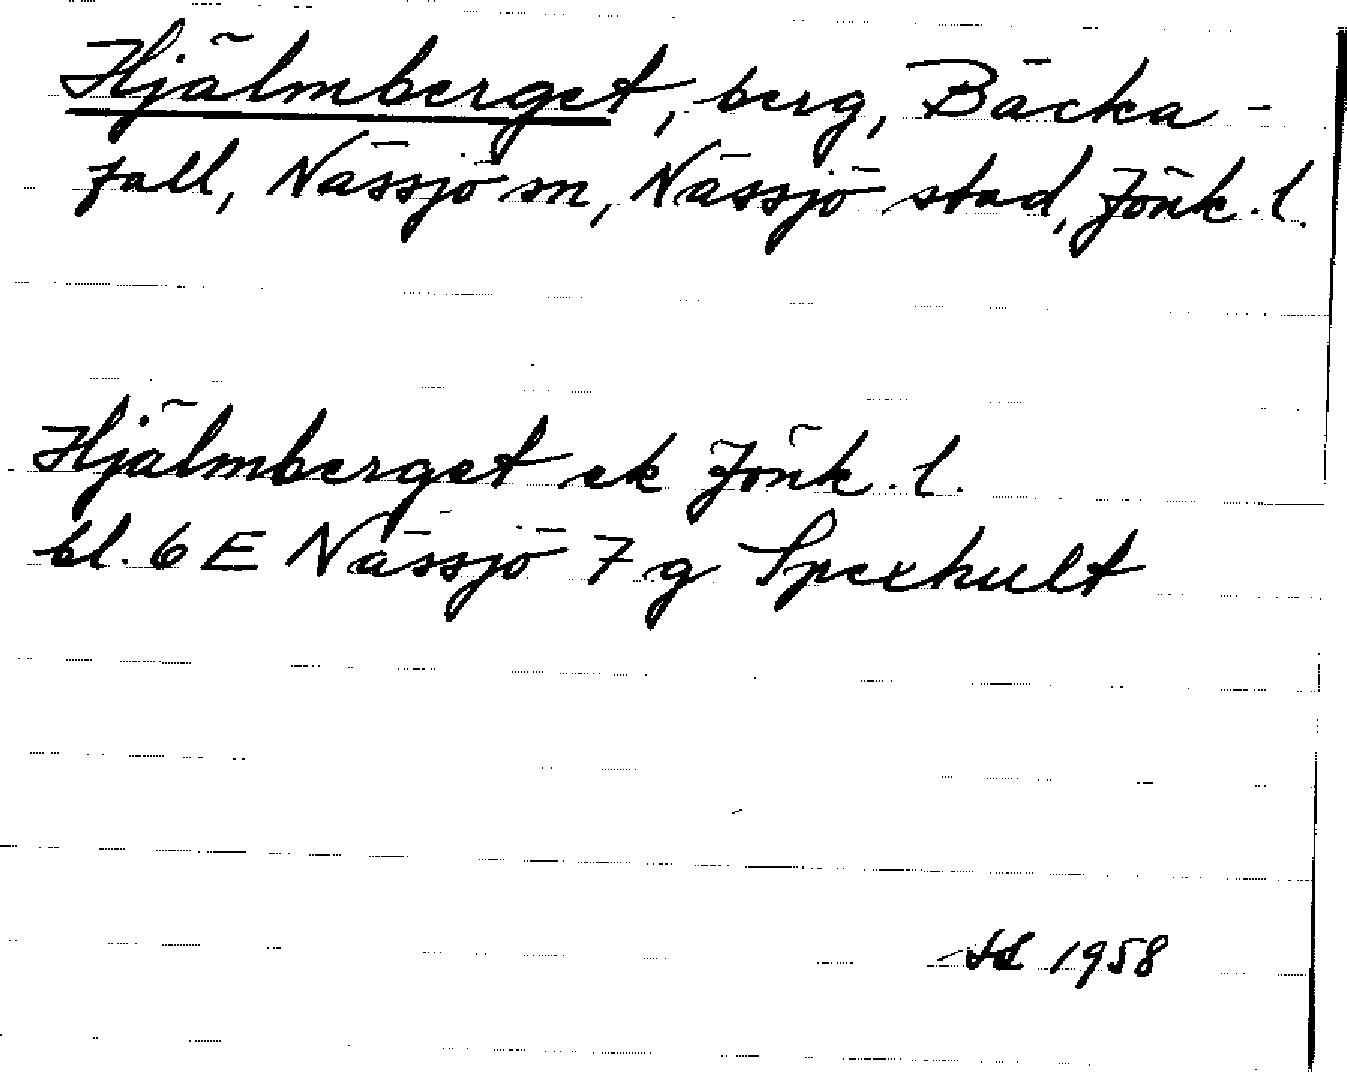 Hjälmberget, berg, Bäcka-
fall, Nässjö sn, Nässjö stad, Jönk. l.
Hjälmberget ek Jönk. l.
bl. 6 E Nässjö 7 g Spexhult
1958